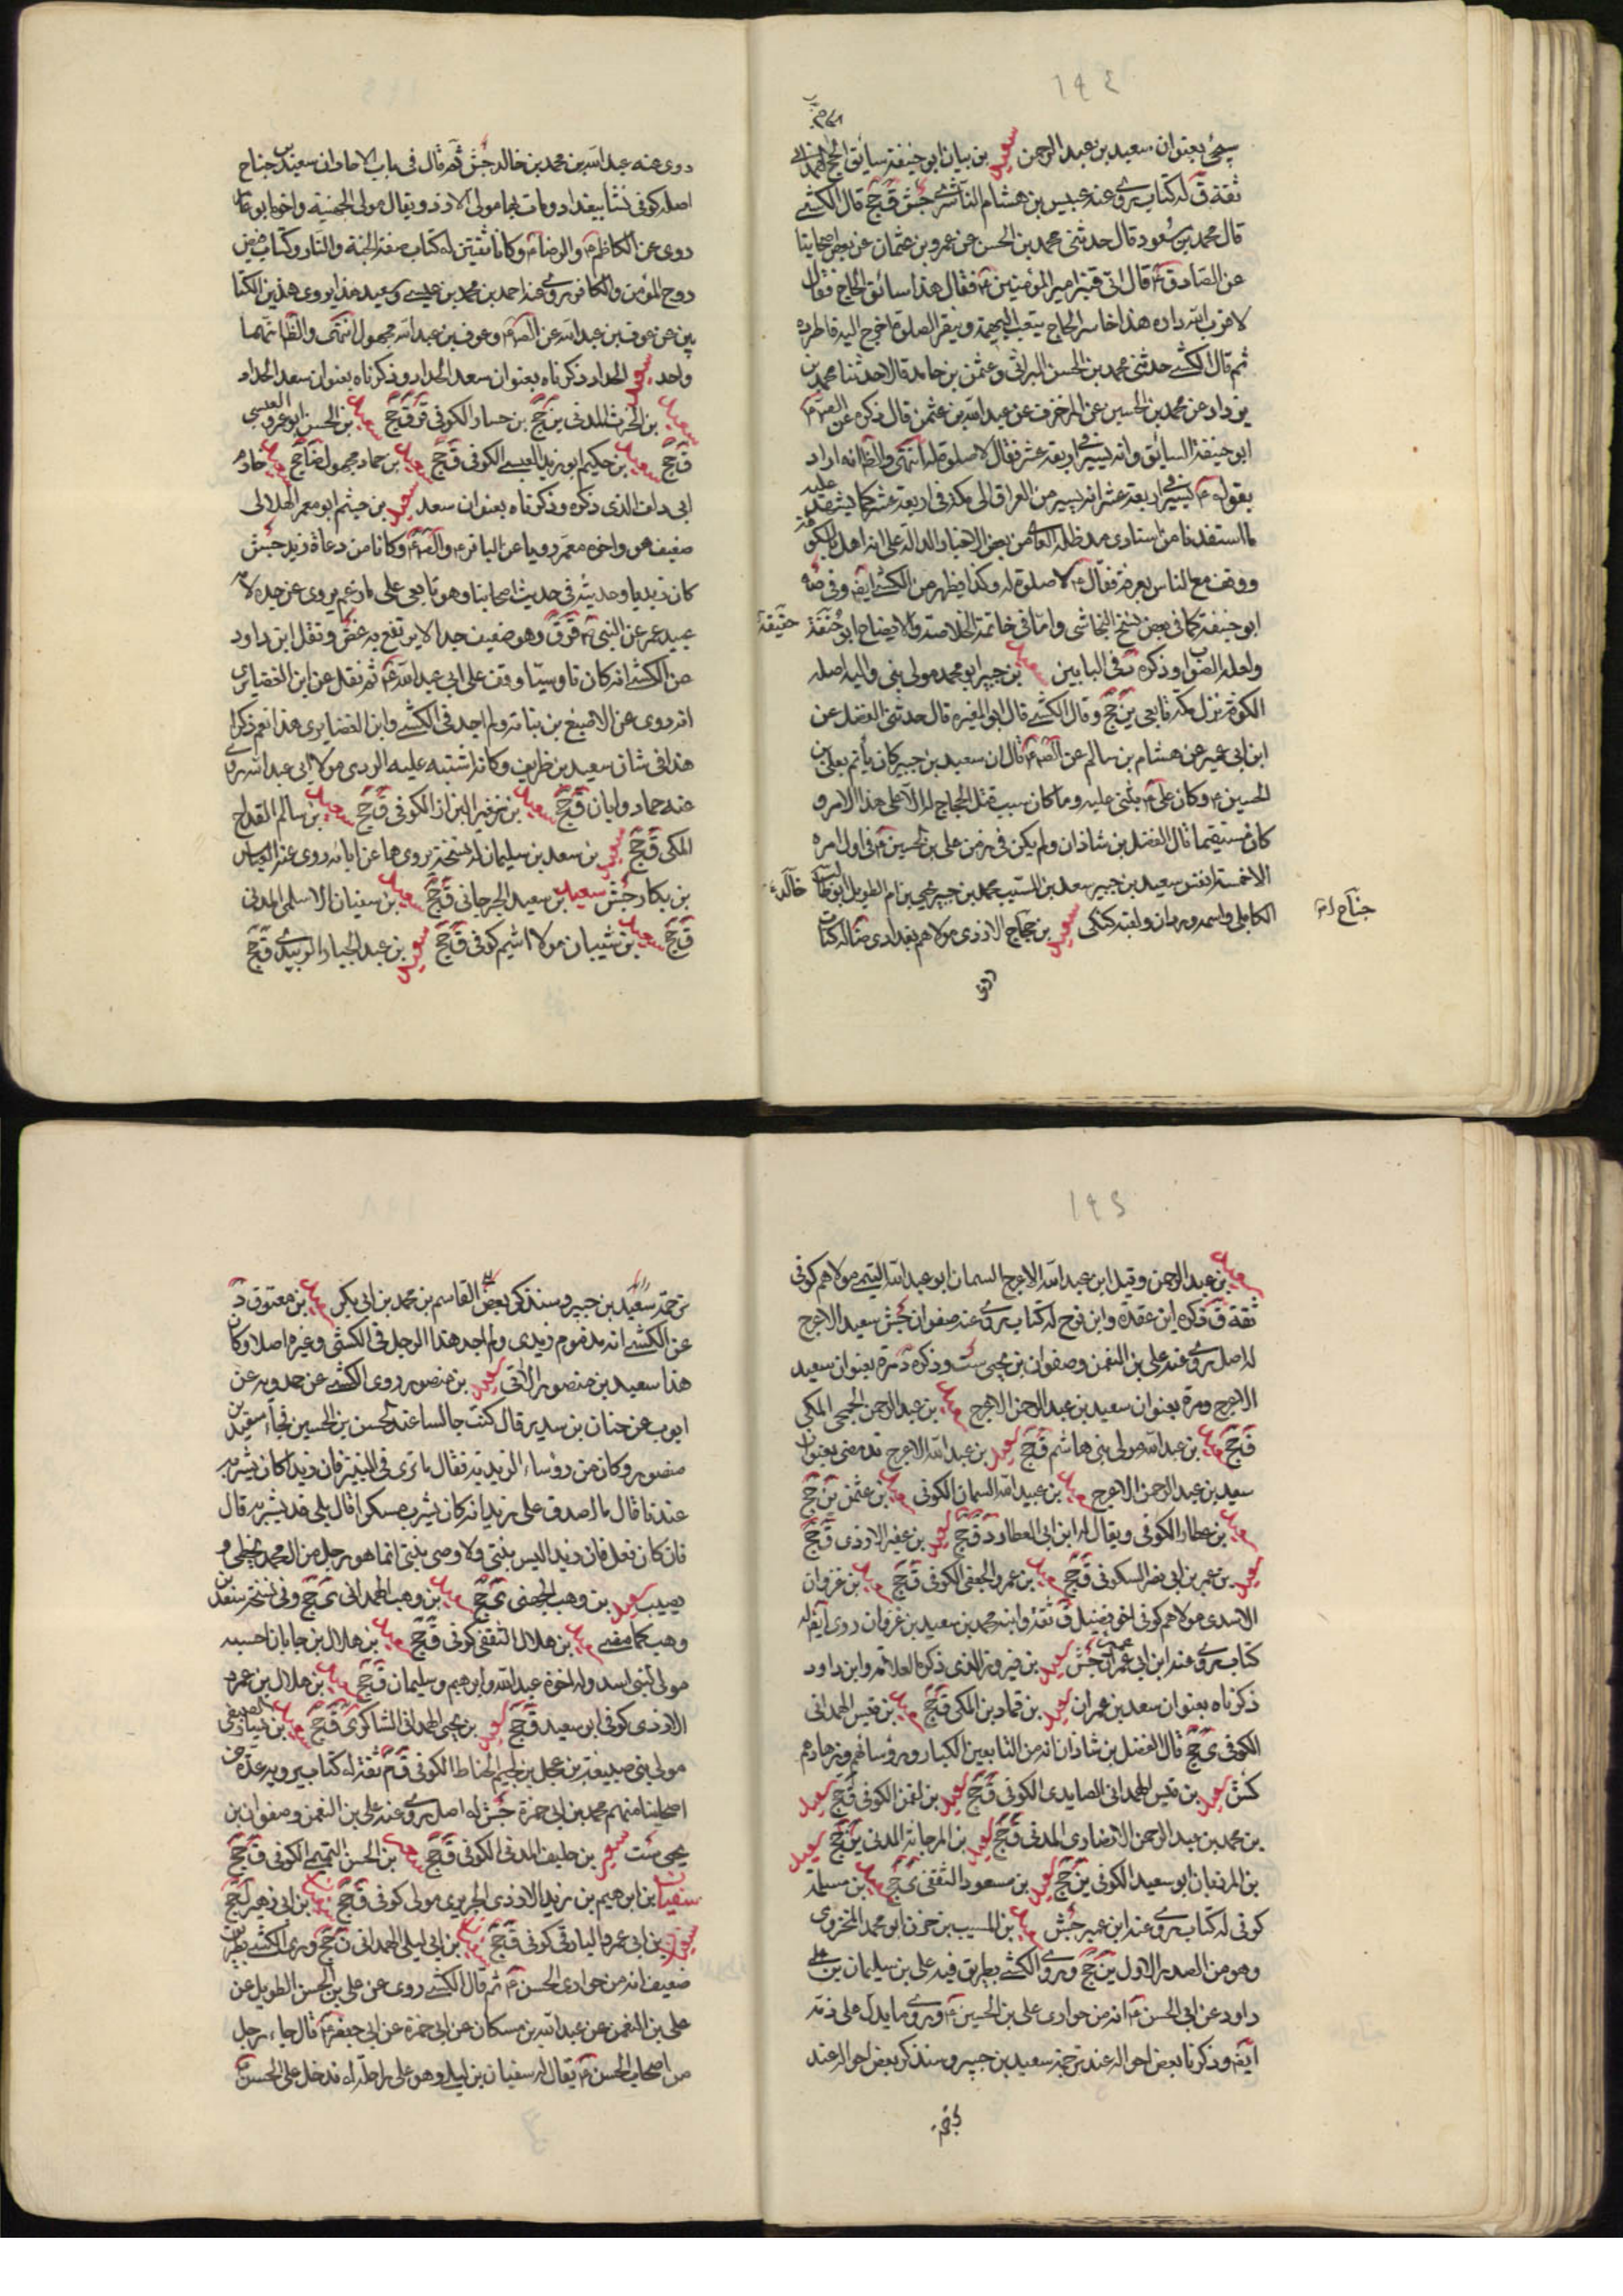 ١٩٤
سيجئ بعنوان سعيد بن عبد الرحمن سعيد بن بيان ابو حنيفة سائق الحاج الهمداني
ثقة ق له كتاب يروى عنه عبيس بن هشام الناشرى جش ق جخ قال الكشى
قال محمد بن مسعود قال حدثنى محمد بن الحسن عن عمرو بن عثمان عن بعض اصحابنا
عن الصادق ع قال اتى قنبر امير المؤمنين ع فقال هذا سائق الحاج فقال
لا قرب الله داره هذا خاسر الحاج يتعب البهيمة وينقر الصلوة اخرج اليه فاطرده
ثم قال الكشى حدثنى محمد بن الحسن البراثى وعثمن بن حامد قالا حدثنا محمد بن
يزداد عن محمد بن الحسين عن المزخرف عن عبد الله بن عثمن قال ذكر عن
ابو حنيفة السائق وانه يسير فى اربعة عشر فقال لا صلوة له انتهى والظ انه اراد
بقوله يسير فى اربعة عشر انه يسير من العراق الى مكة فى اربعة عشر كما يشهد عليه
ما استفدنا من استادى مد ظله العالى من بعض الاخبار الدالة على انه اهل بالكوفة
ووقف مع الناس بعرفة فقال ع لا صلوة له وكذا يظهر من الكشى ايض وفى
ابو حنيفة كما فى بعض نسخ النجاشى واما فى خاتمة الخلاصة والايضاح ابن
ولعله الصواب وذكره فى البابين سعيد بن جبير ابو محمد مولى بنى والبه اصله
الكوفة نزل مكة تابعى ين جخ وقال الكشى قال ابو المغيرة قال حدثنى الفضل عن
ابن ابى عمير عن هشام بن سالم عن قال ان سعيد بن جبير كان يأتم بعلى بن
الحسين ع وكان على ع يثنى عليه وما كان سبب قتل الحجاج له الا على هذا الامر و
كان مستقيما قال الفضل بن شاذان ولم يكن فى زمن على بن الحسين ع فى اول امره
الا خمسة انفس سعيد بن جبير سعد بن المسيب محمد بن جبير يحيى بن ام الطويل ابو خالد
الكابلى واسمه وردان ولقبه كنكر سعيد بن جناح الازدى مولاهم بغدادى له كتاب
جناح
روى
روى عنه عبد الله بن محمد بن خالد جش ثم قال فى باب الاحاد ان سعيد بن جناح
اصله كوفى نشأ ببغداد ومات بها مولى الازد ويقال مولى الجهنية واخوه ابو عامر
روى عن الكاظم والرضا ع وكانا ثقتين له كتاب صفة الجنة والنار وكتاب قبض
روح المؤمن والكافر يروى عنه احمد بن محمد بن عيسى وسعيد هذا يروى هذين الكتا
بين عن عوف بن عبد الله عن وعوف بن عبد الله مجهول انتهى والظ انهما
واحد سعيد الحداد ذكرناه بعنوان سعد الحداد وذكرناه بعنوان سعد الحداد
سعيد بن الحرث المدنى ين جخ بن حسان الكوفى ق جخ سعيد بن الحسن ابو عمرو العبسى
ق جخ سعيد بن حكيم ابو زيد العبسى الكوفى ق جخ سعيد بن حماد مجهول ضا جخ سعيد خادم
ابى دلف الذى ذكره وذكرناه بعنوان سعد سعيد بن خيثم ابو معمر الهلالى
ضعيف هو واخوه معمر رويا عن الباقر ع وكانا من دعاة زيد جش
كان زيديا وحديثه فى حديث اصحابنا وهو تابعى على ما زعم يروى عن جده لامه
عبيد عن النبى ص ق ق وهو ضعيف جدا لا يرتفع به غض ونقل ابن داود
عن الكشى انه كان ناوسيا وقف على ابى عبد الله ع ثم نقل عن ابن الغضائرى
انه روى عن الاصبغ بن نباتة ولم اجد فى الكشى وابن الغضايرى هذا نعم ذكرا
هذا فى شان سعيد بن طريف وكانه اشتبه عليه الازدى مولا ابى عبد الله يروى
عنه حماد وابان ق جخ سعيد بن زفير البزاز الكوفى ق جخ سعيد بن سالم القداح
المكى ق جخ سعيد بن سعد بن سليمان له نسخة يرويها عن ابائه روى عنه العباس
بن بكار جش سعيد بن سعيد الجرجانى ق جخ سعيد بن سفيان الاسلمى المدنى
ق جخ سعيد بن شيبان مولا اشيم كوفى ق جخ سعيد بن عبد الجبار الزبيدى ق جخ
١٩٥
سعيد بن عبد الرحمن وقيل ابن عبد الله الاعرج السمان ابو عبد الله التيمى مولاهم كوفى
ثقة ق ذكره ابن عقدة وابن نوح له كتاب يروى عنه صفوان جش سعيد الاعرج
له اصل يروى عنه على بن النعمن وصفوان بن يحيى ست وذكره مرة بعنوان سعيد
الاعرج ومرة بعنوان سعيد بن عبد الرحمن الاعرج سعيد بن عبد الرحمن الجمحى المكى
ق جخ سعيد بن عبد الله مولى بنى هاشم ق جخ سعيد بن عبد الله الاعرج قد مضى بعنوان
سعيد بن عبد الرحمن الاعرج سعيد بن عبيد الله السمان الكوفى سعيد بن عثمن ين جخ
سعيد بن عطارد الكوفى ويقال له ابن ابى العطارد ق جخ سعيد بن عفير الازدى ق جخ
سعيد بن عمر بن ابى نصر السكونى ق جخ سعيد بن عمرو الجعفى الكوفى ق جخ سعيد بن غزوان
الاسدى مولاهم كوفى اخو فضيل ق ثقة وابنه محمد بن سعيد بن غزوان روى ايض له
كتاب يروى عنه ابن ابى عمير جش سعيد بن فيروز الذى ذكره العلامة وابن داود
ذكرناه بعنوان سعد بن عمران سعيد بن قماد بن المكى ق جخ سعيد بن قيس الهمدانى
الكوفى ى جخ قال الفضل بن شاذان انه من التابعين الكبار ورؤسائهم وزهادهم
كش سعيد بن قيس الهمدانى الصايدى الكوفى ق جخ سعيد بن لقمن الكوفى ق جخ سعيد
بن محمد بن عبد الرحمن الانصارى المدنى ق جخ سعيد بن المرجانة المدنى ين جخ سعيد
بن المرزبان ابو سعيد الكوفى ين جخ سعيد بن مسعود الثقفى ى جخ سعيد بن مسلمة
كوفى له كتاب يروى عنه ابن عمير جش سعيد بن المسيب بن حزن ابو محمد المخزومى
وهو من الصدر الاول ين جخ وروى الكشى بطريق فيه على بن سليمان بن
داود عن ابى الحسن ع انه من حوارى على بن الحسين ع وروى ما يدل على ذمه
ايض وذكرنا بعض احواله عند ترجمة سعيد بن جبير وسنذكر بعض احواله عند
ترجمة
ترجمة سعيد بن جبير وسنذكر بعض القاسم بن محمد بن ابى بكر سعيد بن معتوق
عن الكشى انه مذموم زيدى ولم اجد هذا الرجل فى الكشى وغيره اصلا وكان
هذا سعيد بن منصور الاتى سعيد بن منصور روى الكشى عن حمدويه عن
ايوب عن حنان بن سدير قال كنت جالسا عند الحسن بن الحسين فجاء سعيد بن
منصور وكان من رؤساء الزيدية فقال ما ترى فى النبيذ فان زيدا كان يشربه
عندنا قال ما اصدق على زيد انه كان يشرب مسكرا قال بلى قد يشربه قال
فان كان فعل فان زيد اليس بنبى ولا وصى بنبى انما هو رجل من ال محمد يخطى و
يصيب سعيد بن وهب الجهنى ى جخ سعيد بن وهب الهمدانى ى جخ وفى نسخة سعد بن
وهب كما مضى سعيد بن هلال الثقفى كوفى ق جخ سعيد بن هلال بن جابان احسبه
مولى لبنى اسد وله اخوة عبد الله وابرهيم وسليمان ق جخ سعيد بن هلال بن عمرو
الازدى كوفى ابو سعيد ق جخ سعيد بن يحيى الهمدانى الشاكرى ق جخ سعيد بن يسار الضبعى
مولى بنى ضبيعة بن عجل بن لجيم الحناط الكوفى ق م ثقة له كتاب يرويه عدة من
اصحابنا منهم محمد بن ابى حمزة جش له اصل يروى عنه على بن النعمن وصفوان بن
يحيى ست سعيد بن خليف المدنى الكوفى ق جخ سعيد بن الحسن التميمى الكوفى ق جخ
سفيان بن ابرهيم بن زيد الازدى الجريرى مولى كوفى ق جخ سفيان بن ابى زهير ل جخ
سفيان بن ابى عمرو البارقى كوفى ق جخ سفيان بن ابى ليلى الهمدانى ن جخ وروى الكشى بطريق
ضعيف انه من حوارى الحسن ع ثم قال الكشى روى عن على بن الحسن الطويل عن
على بن النعمن عن عبد الله بن مسكان عن ابى حمزة عن ابى جعفر ع قال جاء رجل
من اصحاب الحسن ع يقال له سفيان بن ليلى وهو على راحلة له فدخل على الحسن ع